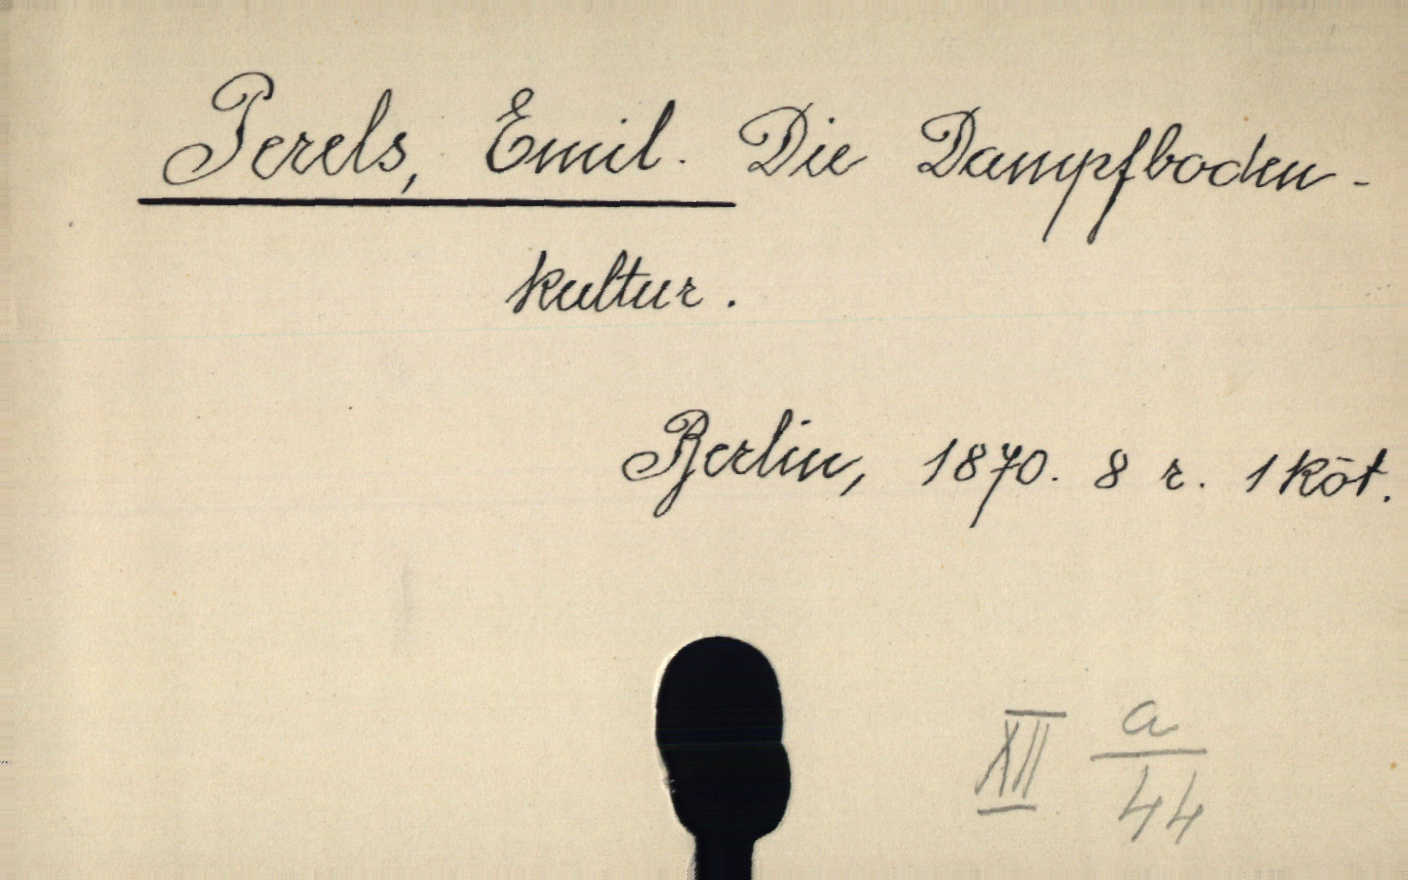 Perels, Emil. Die Dampfboden-
kultur.
Berlin, 1870. 8 r. 1 köt.
XII a/44